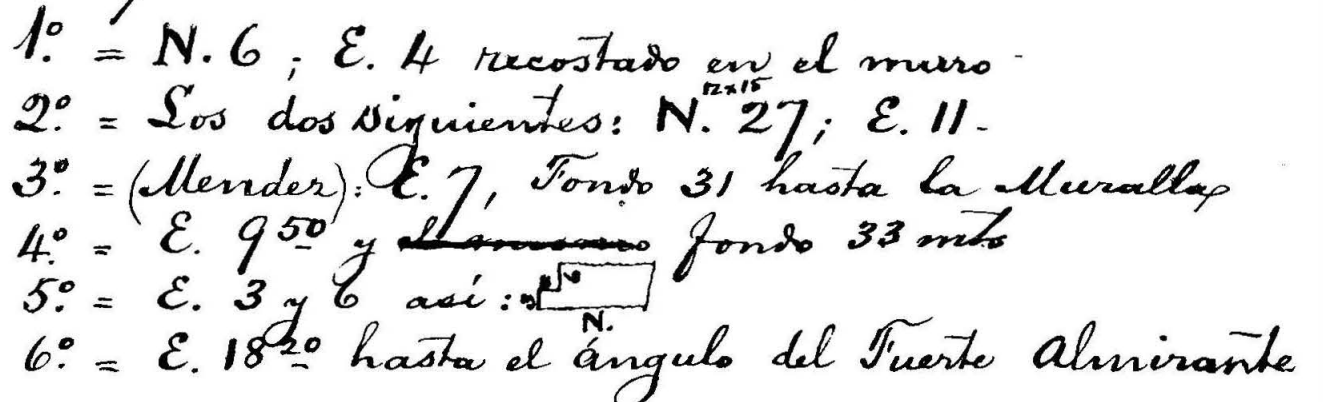 1º. = N. 6 ; E. 4 recostado en el muro
2º. = Los dos siguientes: N. 12x15 27; E. 11.
3º. = (Mendez): E. 7, Fondo 31 hasta la Muralla
4º. = E. 9 50 y fondo 33 mts
5º. = E. 3 y 6 así :
N.
6º. = E. 18 20 hasta el ángulo del Fuerte Almirante